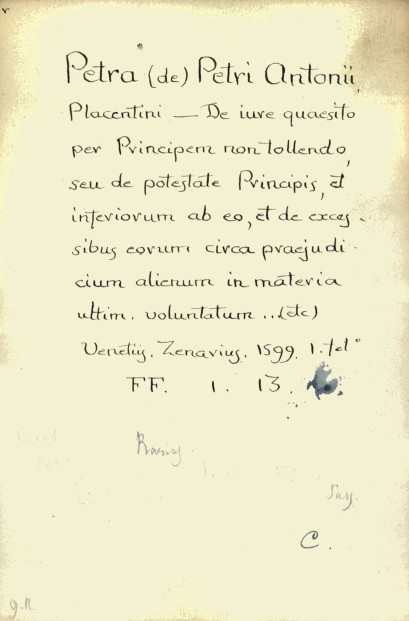 Petra (de) Petri Antonii,
Placentini — De iure quaesito
per Principem non tollendo,
seu de potestate Principis, et
inferiorum ab eo, et de exces-
sibus eorum circa praejudi-
cium alienum in materia
ultim. voluntatum ..(etc)
Venetiis. Zenarius. 1599. 1. fol°
FF. 1. 13.
C.